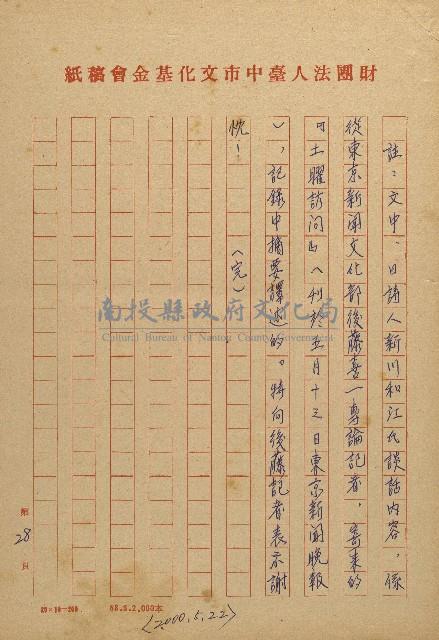 財團法人臺中市文化基金會稿紙
註：文中、日詩人新川和江氏談話内容，係
從東京新聞文化部後藤喜一專論記者，寄来的
『土曜訪問』（刊於五月十三日東京新聞晚報
），記錄中摘要譯述的。特向後藤記者表示謝
忱！
（完）
南投縣政府文化局
Cultural Bureau of Nantou County Government
第28頁
20×10=200
88.5.2,000本
〈2000.5.22〉